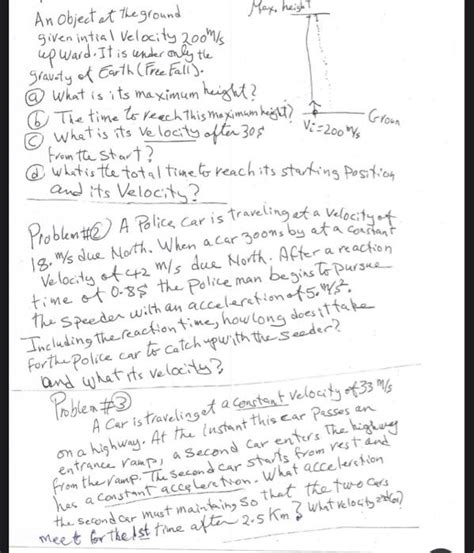 An Object at the ground
given intial Velocity 200 m/s
upward. It is under only the
gravity of Earth (Free Fall).
ⓐ What is its maximum height?
ⓑ The time to reach this maximum height?
ⓒ What is its velocity after 30s
from the start?
ⓓ what is the total time to reach its starting Position
and its Velocity?
Max. height
Groun
Vi = 200 m/s
Problem #② A Police car is traveling at a velocity of
18. m/s due North. When a car zooms by at a constant
Velocity of 42 m/s due North. After a reaction
time of 0.8s the Police man begins to pursue
the speeder with an acceleration of 5. m/s².
Including the reaction time, how long does it take
for the Police car to catch up with the Seeder?
and what its velocity?
Problem #③
A Car is traveling at a constant velocity of 33 m/s
on a highway. At the Instant this car passes an
entrance ramp, a second car enters The highway
from the ramp. The second car starts from rest and
has a constant acceleration. What acceleration
the second car must maintning so that the two cars
meet for the 1st time after 2.5 Km? What velocity